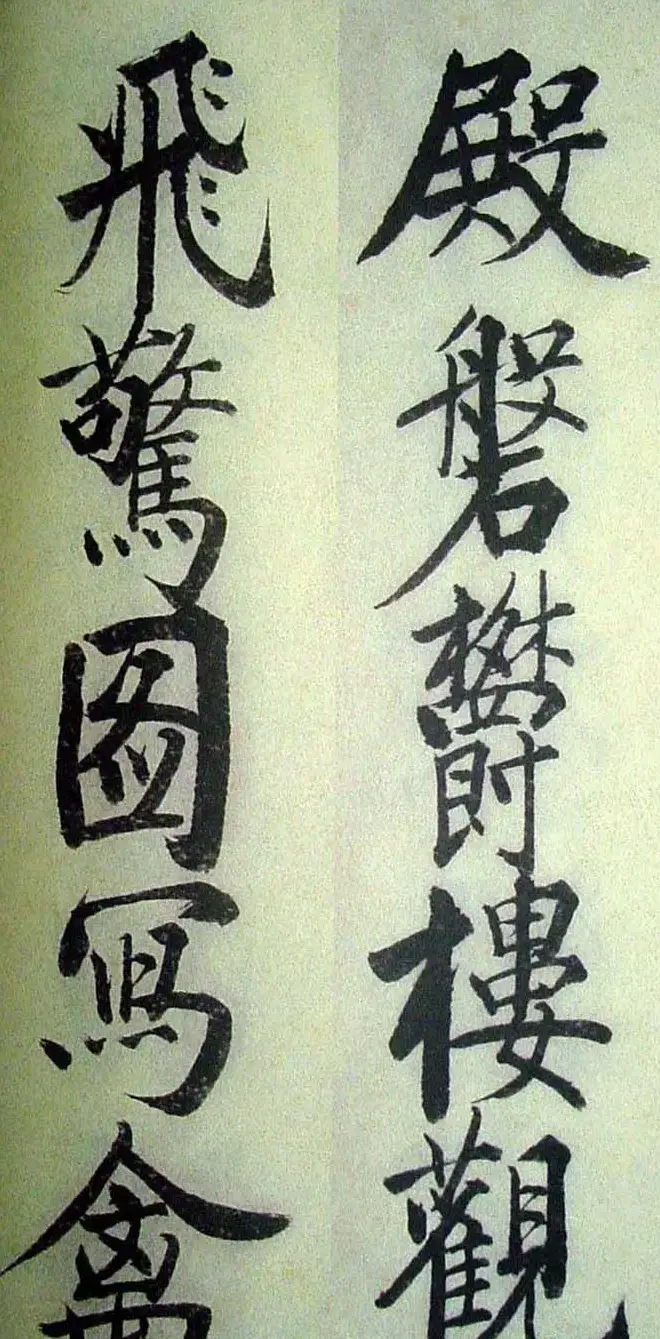 殿磐欝樓觀
飛驚圖寫禽